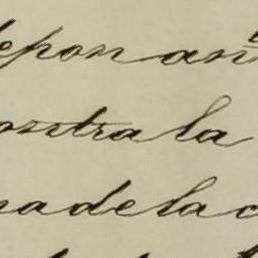 depon an
ontra la
na de la c